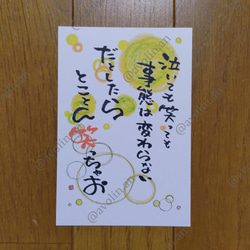 泣いても笑っても
事態は変わらない
だとしたら
とことん笑っちゃお
@avolinan